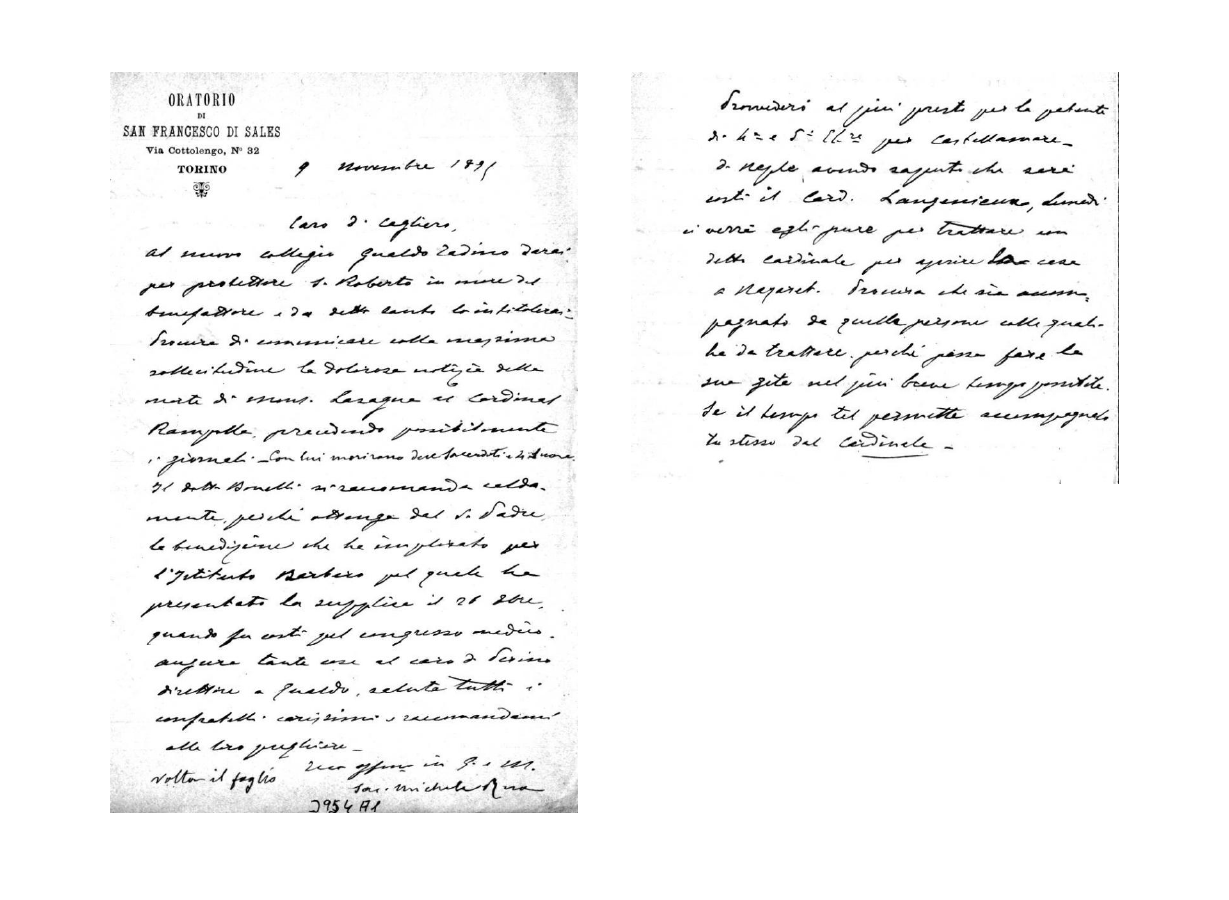 ORATORIO
DI
SAN FRANCESCO DI SALES
Via Cottolengo, N° 32
TORINO
9 novembre 1895
Caro D. Cagliero,
Al nuovo collegio Gualdo Tadino darai
per protettore S. Roberto in more del
benefattore e da detto santo lo intitolerai.
Procura di comunicare colla massima
sollecitudine la dolorosa notizia della
morte di Mons. Lasagna al Cardinal
Rampolla, precedendo possibilmente
i giornali. Con lui morirono due Sacerdoti e 4 Suore.
Il dott. Bonelli si raccomanda calda-
mente, perché ottenga dal S. Padre
la benedizione che ha implorato per
l'Istituto Barbero pel quale ha
presentato la supplica il 26 8bre,
quando fu costì pel congresso medico.
Augura tante cose al caro D.
direttore a Gualdo, saluta tutti i
confratelli carissimi e raccomandami
alle loro preghiere_
Tuo aff.mo in G. e M.
Sac. Michele Rua
Voltar il foglio
2954 A1
Provvederò al più presto per la patente
di 4ª e 5ª per Castellamare_
D. Veglo avendo saputo che sarà
costì il Card. Langenieux, Lunedì
ci verrà egli pure per trattare con
detto Cardinale per aprire casa
a Nazaret. Procura che sia accom-
pagnato da quelle persone colle quali
ha da trattare, perché possa fare la
sua gita nel più breve tempo possibile.
Se il tempo tel permette accompagnalo
tu stesso dal Cardinale_